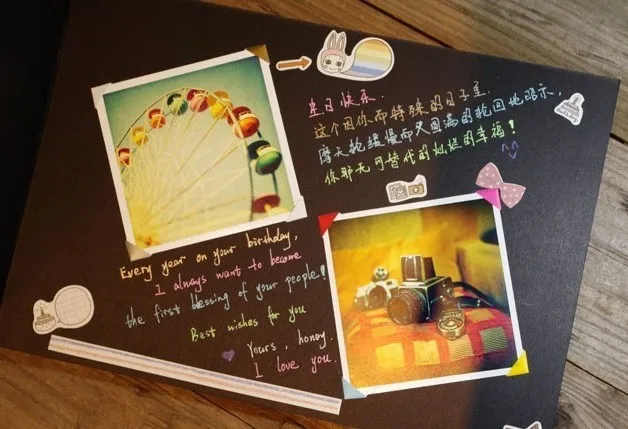 生日快乐.
这个因你而特殊的日子里.
摩天轮缓慢而又圆满的轮回地昭示,
你那无可替代的灿烂的幸福!
Every year on your birthday,
I always want to become
the first blessing of your people!
Best wishes for you
Yours, honey.
I love you.